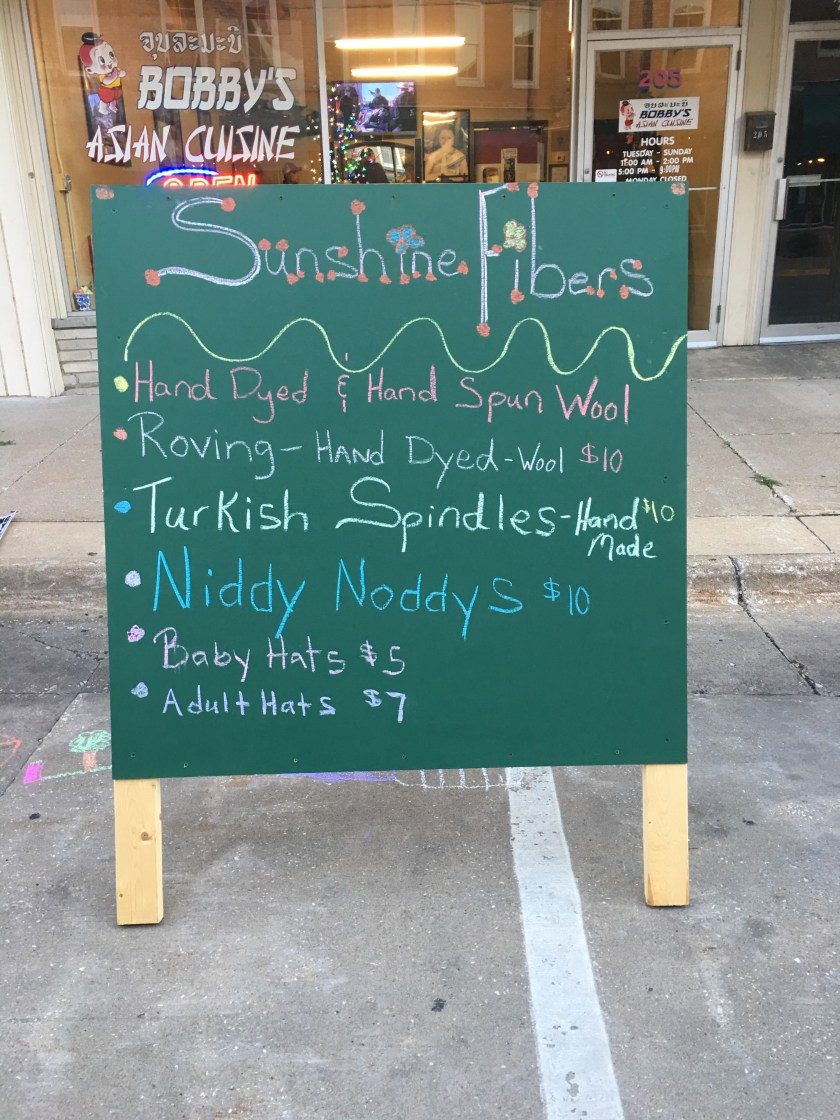 จุบละมะบิ
BOBBY'S
ASIAN CUISINE
OPEN
205
BOBBY'S
ASIAN CUISINE
HOURS
TUESDAY - SUNDAY
11:00 AM - 2:00 PM
5:00 PM - 8:00PM
MONDAY CLOSED
205
Sunshine Fibers
Hand Dyed & Hand Spun Wool
Roving - Hand Dyed - Wool $10
Turkish Spindles - Hand Made $10
Niddy Noddys $10
Baby Hats $5
Adult Hats $7